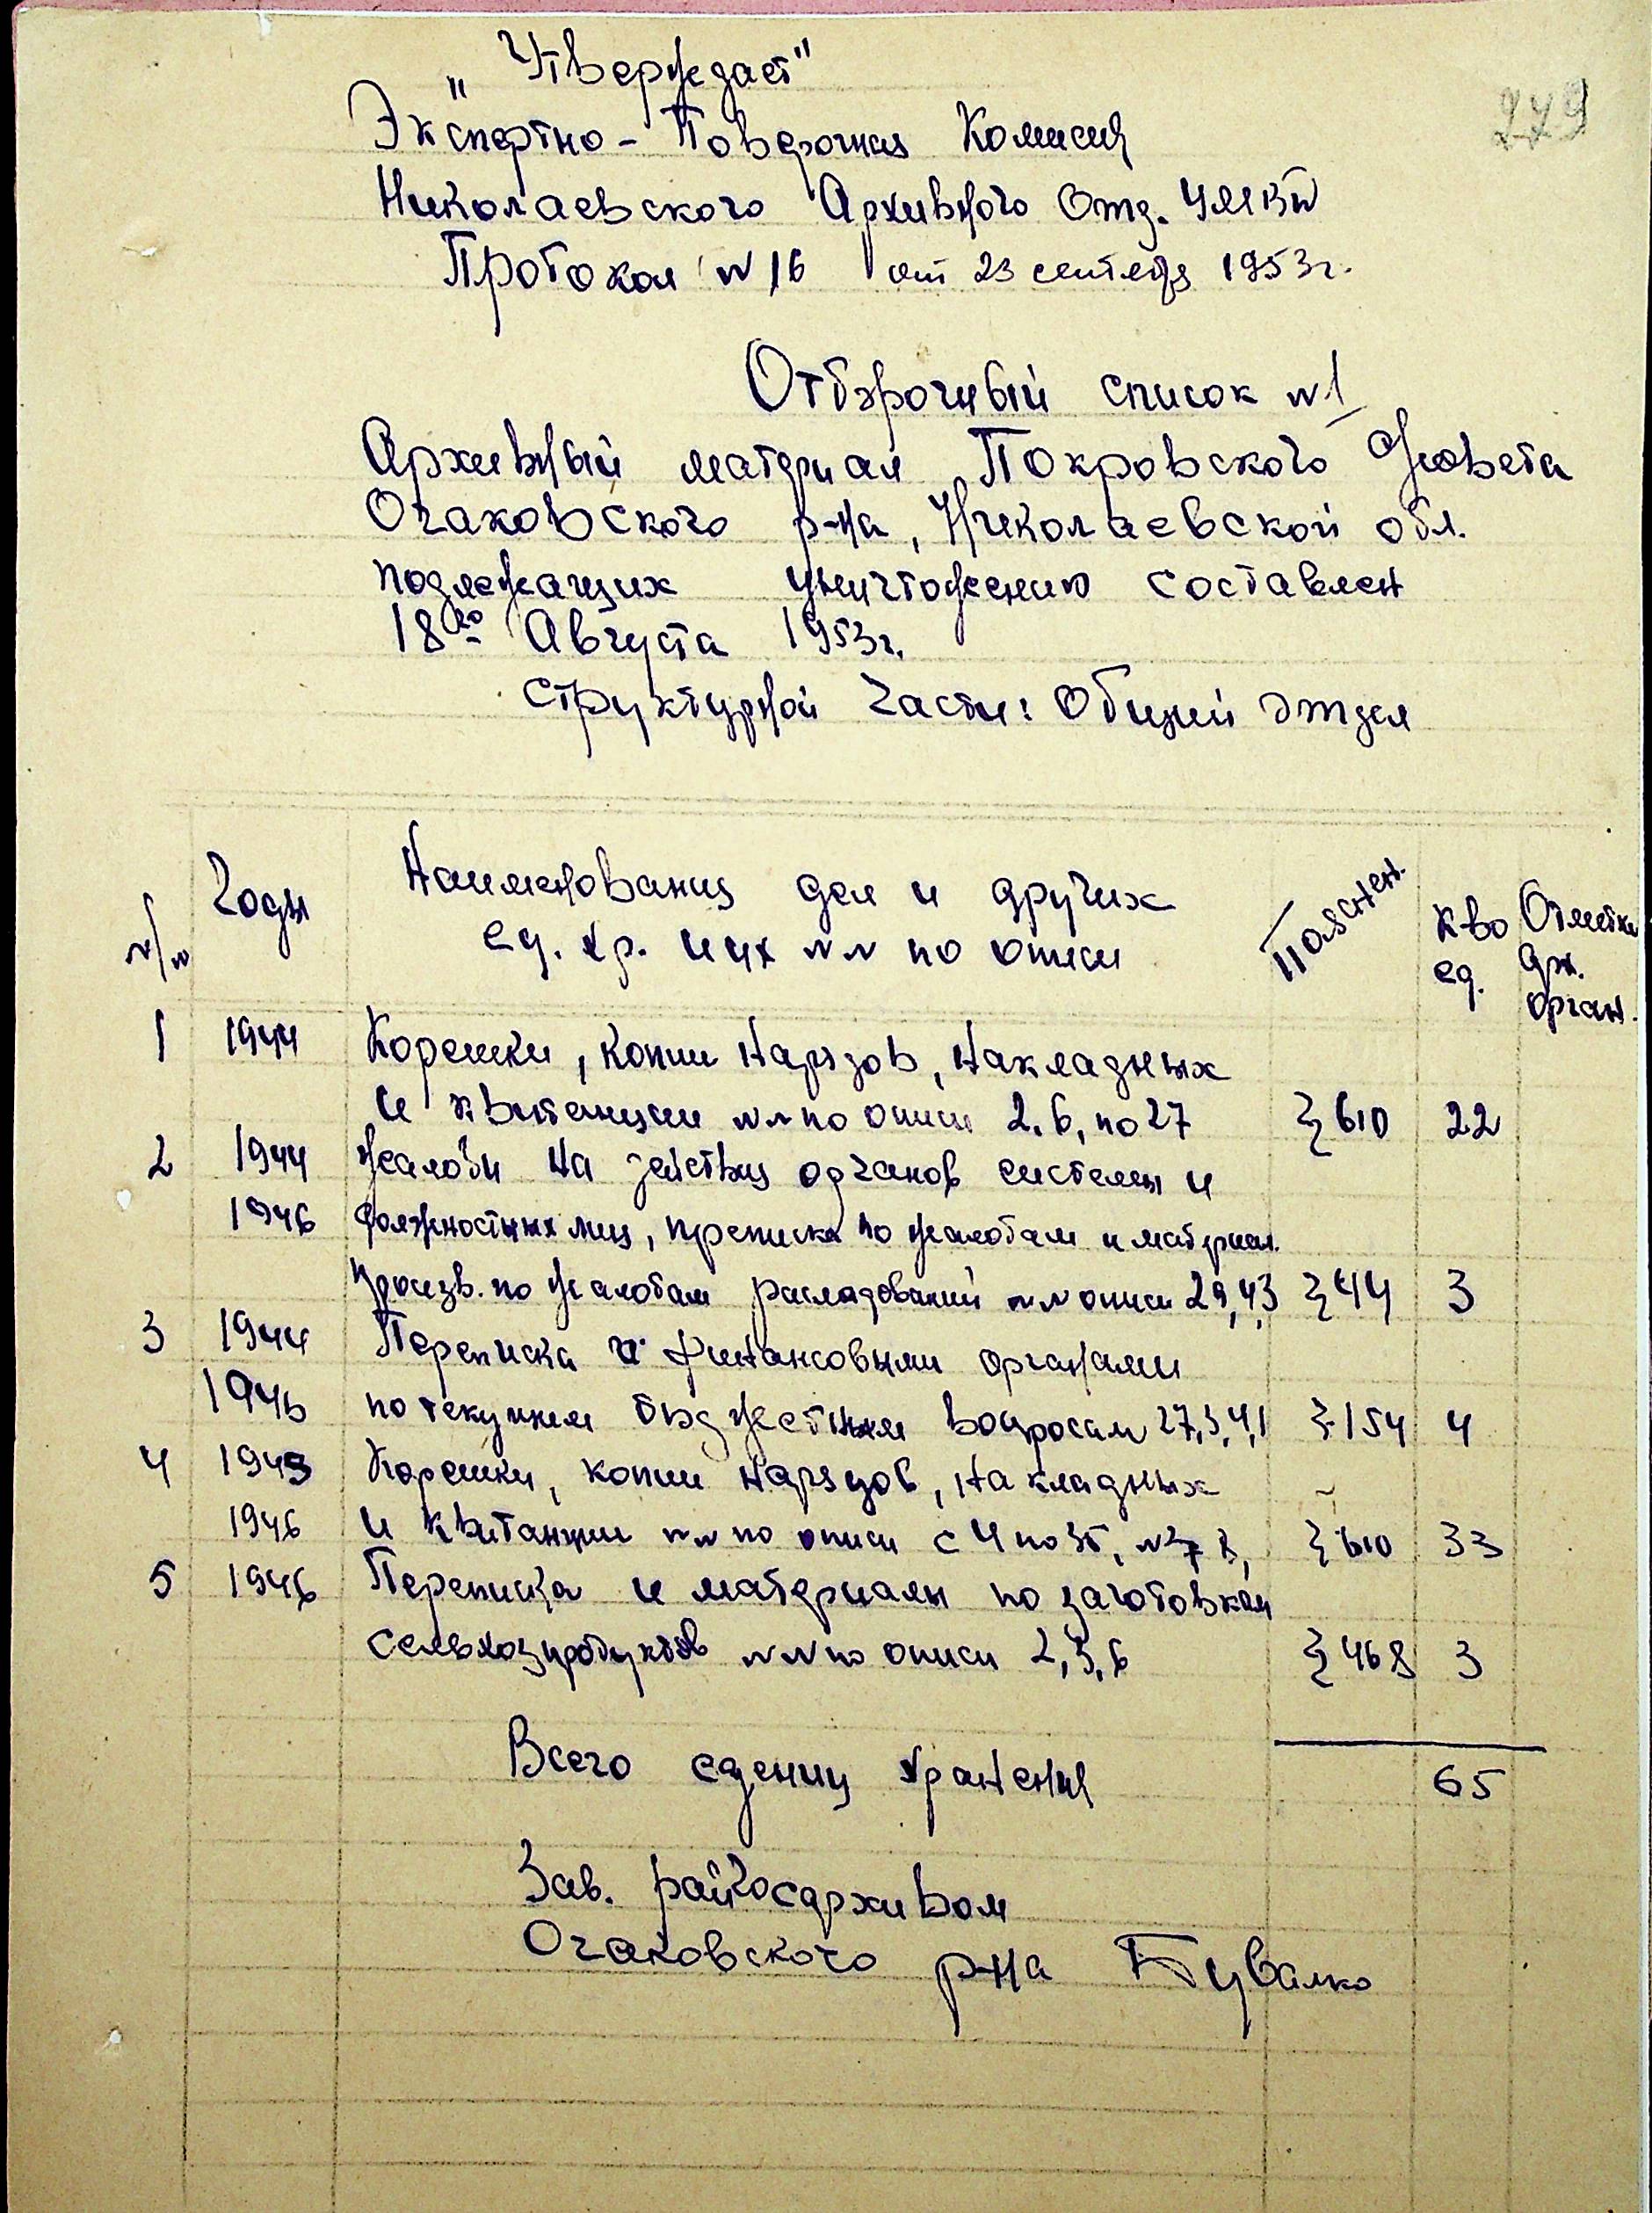 279
"Утверждает"
Экспертно - Поверочная Комисия
Николаевского Архивного Отд. УМВД
Протокол № 16 от 23 сентября 1953 г.
Отборочный список № 1
Архивный материал Покровского с/совета
Очаковского р-на, Николаевской обл.
подлежащих уничтожению составлен
18го Августа 1953 г.
Структурной части: Общий отдел
№/№ Годы Наименования дел и других ед. хр. и их №№ по описи Пояснен. к-во ед. Отметки арх. орган.
1 1944 Корешки, копии нарядов, накладных
и квитанции №№ по описи 2.6, по 27 § 610 22
2 1944 Жалобы на действия органов системы и
1946 должностных лиц, преписка по жалобам и материал.
произв. по жалобам расладований №№ описи 29,43 § 44 3
3 1944 Переписка с финансовыми органами
1946 по текущим бюджетным вопросам 27,3,4,1 § 154 4
4 1945 Корешки, копии нарядов, накладных
1946 и квитанции №№ по описи с 4 по 35, § 610 33
5 1946 Переписка и материалы по заготовкам
сельхозпродуктов №№ по описи 2,3,6 § 468 3
Всего едениц хранения 65
Зав. райгосархивом
Очаковского р-на Бувалко